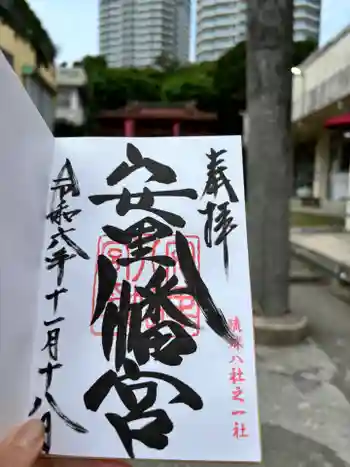 奉拝
琉球八社之一社
安里八幡宮
令和六年十一月十八日